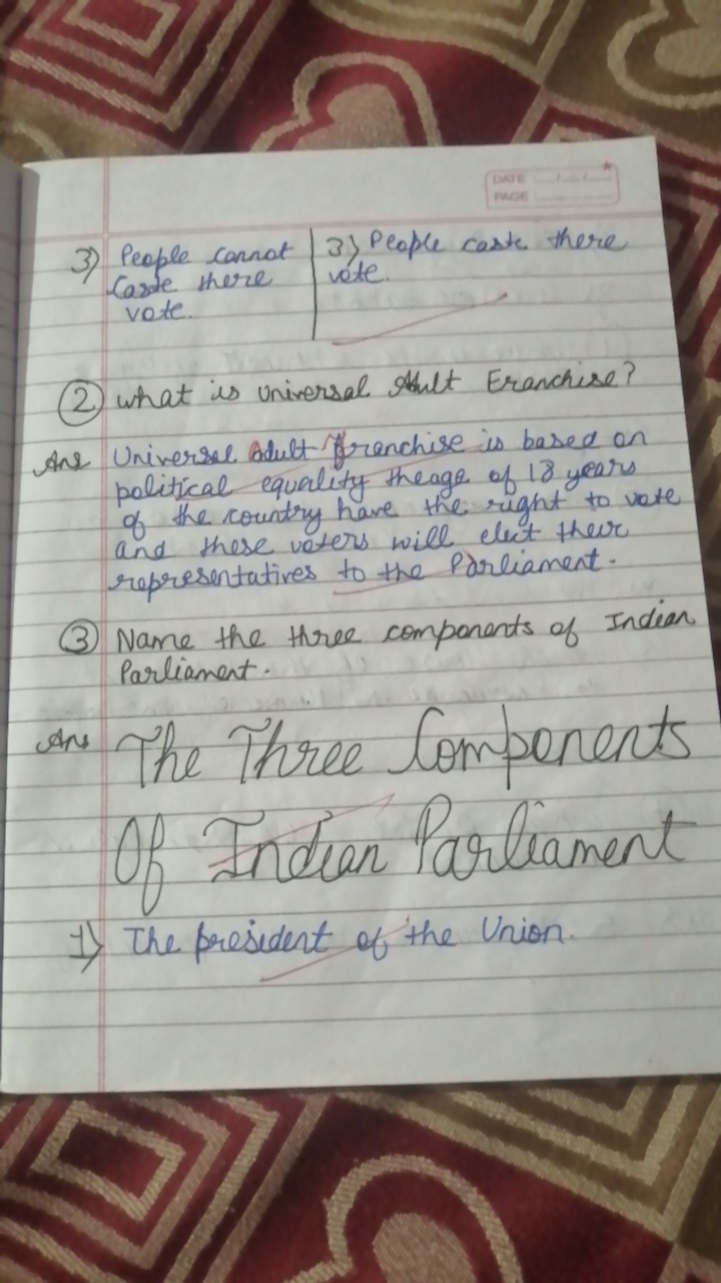 DATE __/__/__
PAGE ______
3) People cannot
caste there
vote.
3) People caste there
vote.
② what is Universal Adult Franchise?
Ans Universal Adult Franchise is based on
political equality the age of 18 years
of the country have the right to vote
and these voters will elect their
representatives to the Parliament.
③ Name the three components of Indian
Parliament.
Ans The Three Components
Of Indian Parliament
1) The president of the Union.